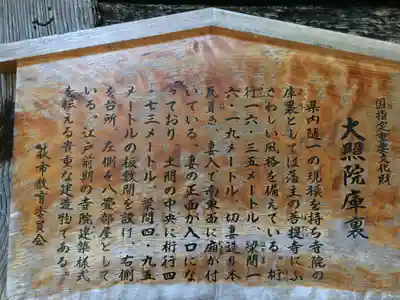 国指定重要文化財
大照院庫裏
県内随一の規模を持ち寺院の
庫裏としては藩主の菩提寺にふ
さわしい風格を備えている。桁
行一六・三五メートル、梁間一
六・一九メートル、切妻造り本
瓦葺き、妻入で南東面に庇が付
いている。妻の正面が入口にな
っており、土間の中央に桁行四
・七三メートル、梁間四・九五
メートルの板敷間を設け、右側
を台所、左側を八畳部屋として
いる。江戸前期の寺院建築様式
を伝える貴重な建造物である。
萩市教育委員会